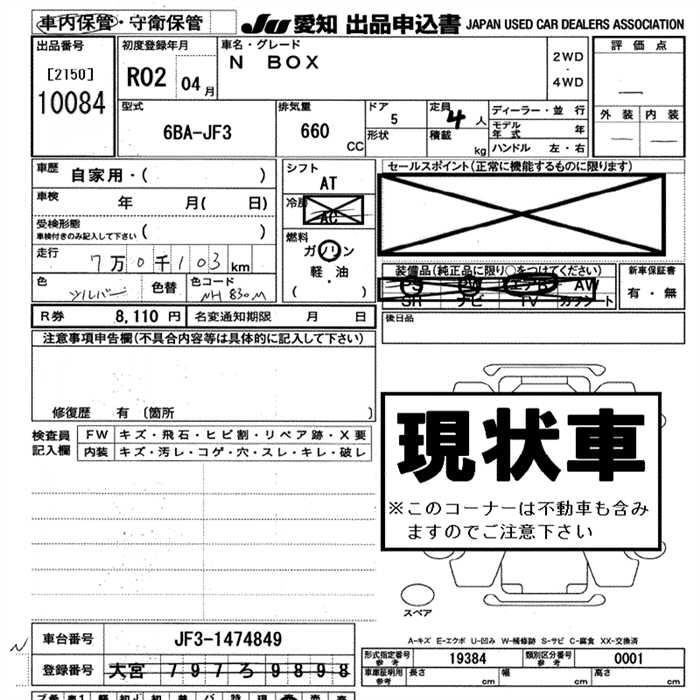 車内保管・守衛保管
JU 愛知 出品申込書 JAPAN USED CAR DEALERS ASSOCIATION
出品番号
[2150]
10084
初度登録年月
R02 04月
車名・グレード
N BOX
2WD
・
4WD
評価点
—
外装 内装
— —
型式
6BA-JF3
排気量
660 CC
ドア
5
形状
定員
4 人
積載
kg
ディーラー・並行
モデル年式 年
ハンドル 左・右
車歴
自家用・( )
車検
年 月( 日)
受検形態
車検付きのみ記入して下さい ( )
走行
7万0千103km
色 シルバー 色替 色コード NH830M
シフト
AT
冷房
AC
燃料
ガソリン
軽・油
( ・ )
セールスポイント(正常に機能するものに限ります)
装備品(純正品に限り○をつけてください)
PS PW エアB AW
SR ナビ TV カワシート
新車保証書
有・無
R券 8,110円 名変通知期限 月 日
後日品
注意事項申告欄(不具合内容等は具体的に記入して下さい)
修復歴 有 〔箇所 〕
検査員記入欄
FW キズ・飛石・ヒビ割・リペア跡・X要
内装 キズ・汚レ・コゲ・穴・スレ・キレ・破レ
現状車
※このコーナーは不動車も含み
ますのでご注意下さい
スペア
A-キズ E-エクボ U-凹み W-補修跡 S-サビ C-腐食 XX-交換済
N
車台番号 JF3-1474849
登録番号 大宮 797 ろ 9898
形式指定番号 参考 19384 類別区分番号 参考 0001
車庫証明用 参考 長さ cm 幅 cm 高さ cm